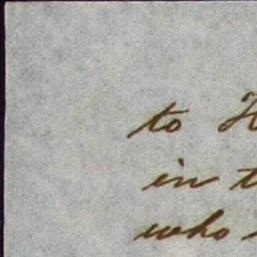 to
in
who